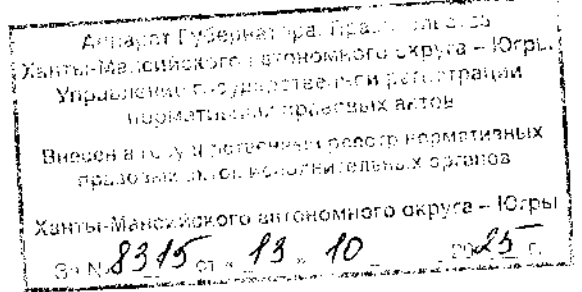 Аппарат Губернатора, Правительства
Ханты-Мансийского автономного округа – Югры
Управление государственной регистрации
нормативных правовых актов
Внесен в государственный реестр нормативных
правовых актов исполнительных органов
Ханты-Мансийского автономного округа – Югры
За № 8315 от « 13 » 10 2025 г.